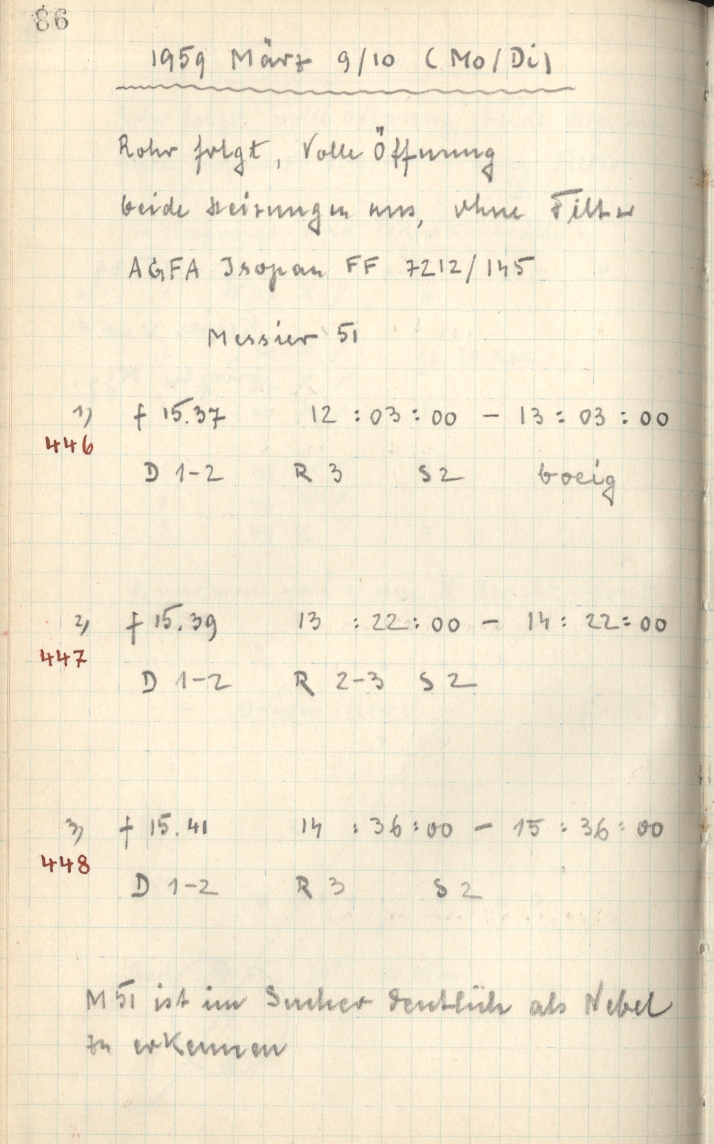 86
1959 März 9/10 (Mo/Di)
Rohr folgt, Volle Öffnung
beide Heizungen aus, ohne Filter
AGFA Isopan FF 7212/145
Messier 51
1) f 15.37 12 : 03 : 00 - 13 : 03 : 00
446
D 1-2 R 3 S 2 boeig
2) f 15.39 13 : 22 : 00 - 14 : 22 : 00
447
D 1-2 R 2-3 S 2
3) f 15.41 14 : 36 : 00 - 15 : 36 : 00
448
D 1-2 R 3 S 2
M 51 ist im Sucher deutlich als Nebel
zu erkennen